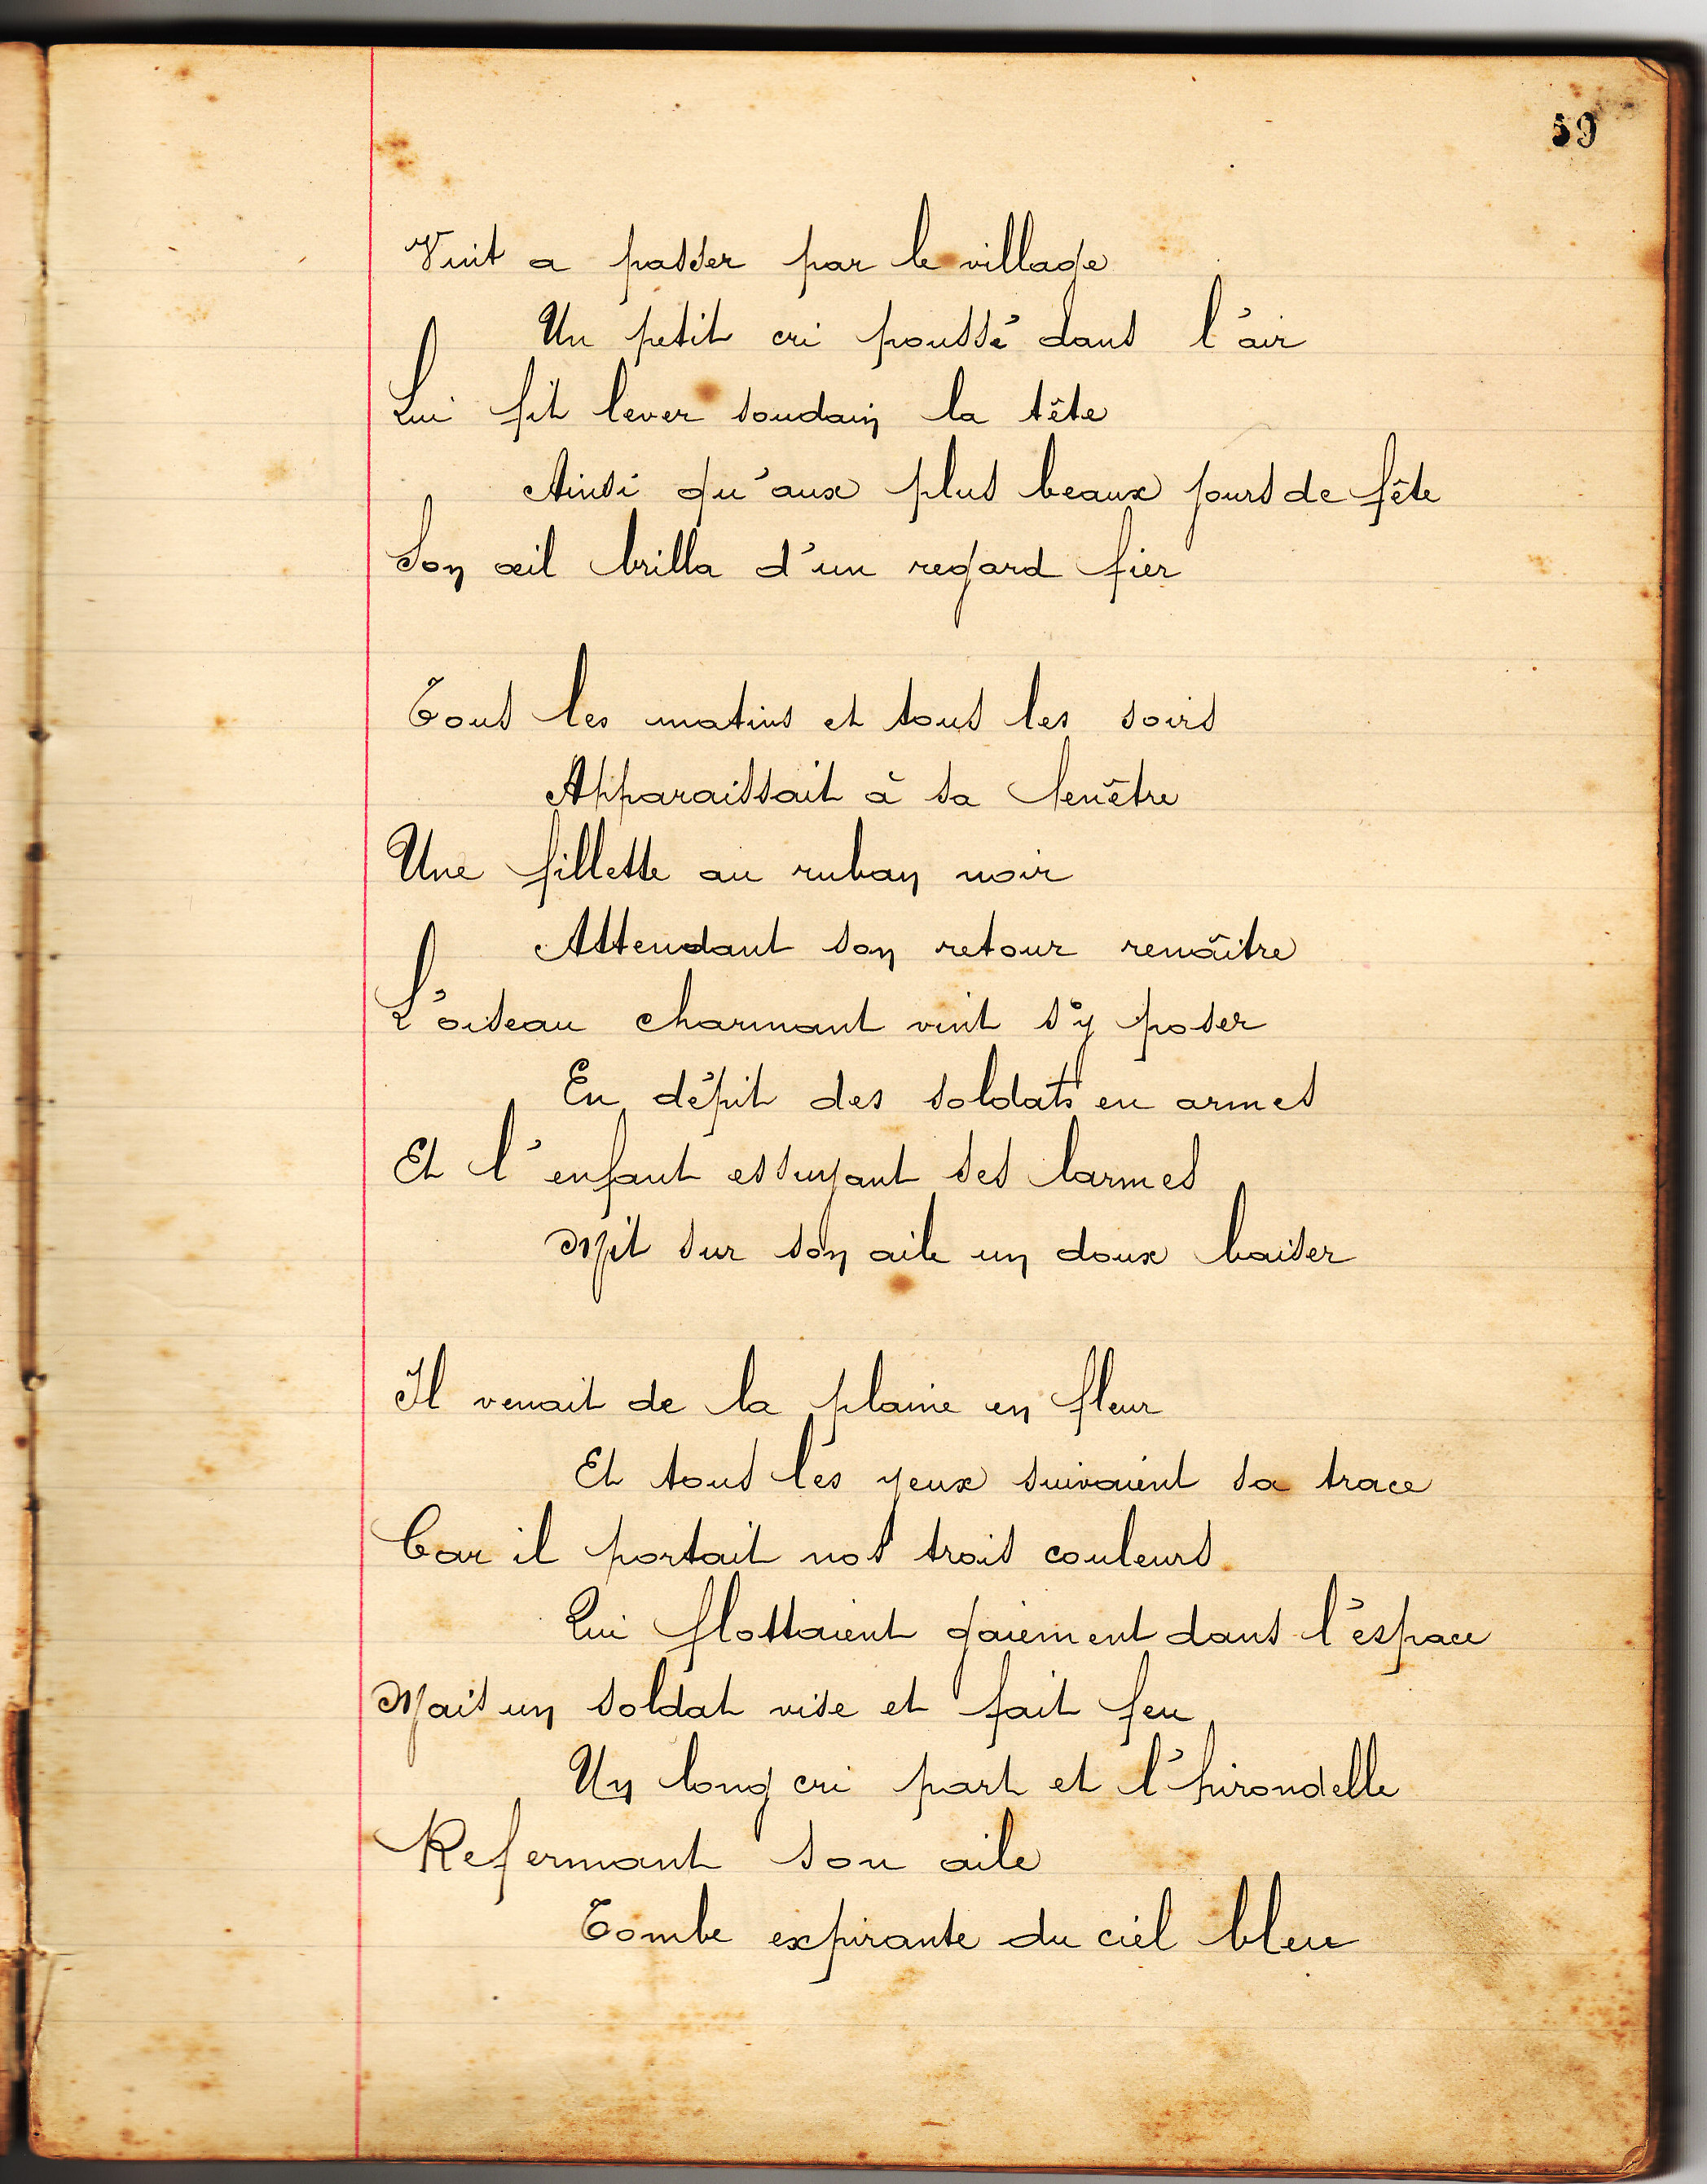 59
Vint a passer par le village
Un petit cri poussé dans l'air
Lui fit lever soudain la tête
Ainsi qu'aux plus beaux jours de fête
Son œil brilla d'un regard fier
Tous les matins et tous les soirs
Apparaissait à sa fenêtre
Une fillette au ruban noir
Attendant son retour renaître
L'oiseau charmant vint s'y poser
En dépit des soldats en armes
Et l'enfant essuyant ses larmes
Mit sur son aile un doux baiser
Il venait de la plaine en fleur
Et tous les yeux suivaient sa trace
Car il portait nos trois couleurs
Qui flottaient gaiement dans l'espace
Mais un soldat vise et fait feu
Un long cri part et l'hirondelle
Refermant son aile
Tombe expirante du ciel bleu